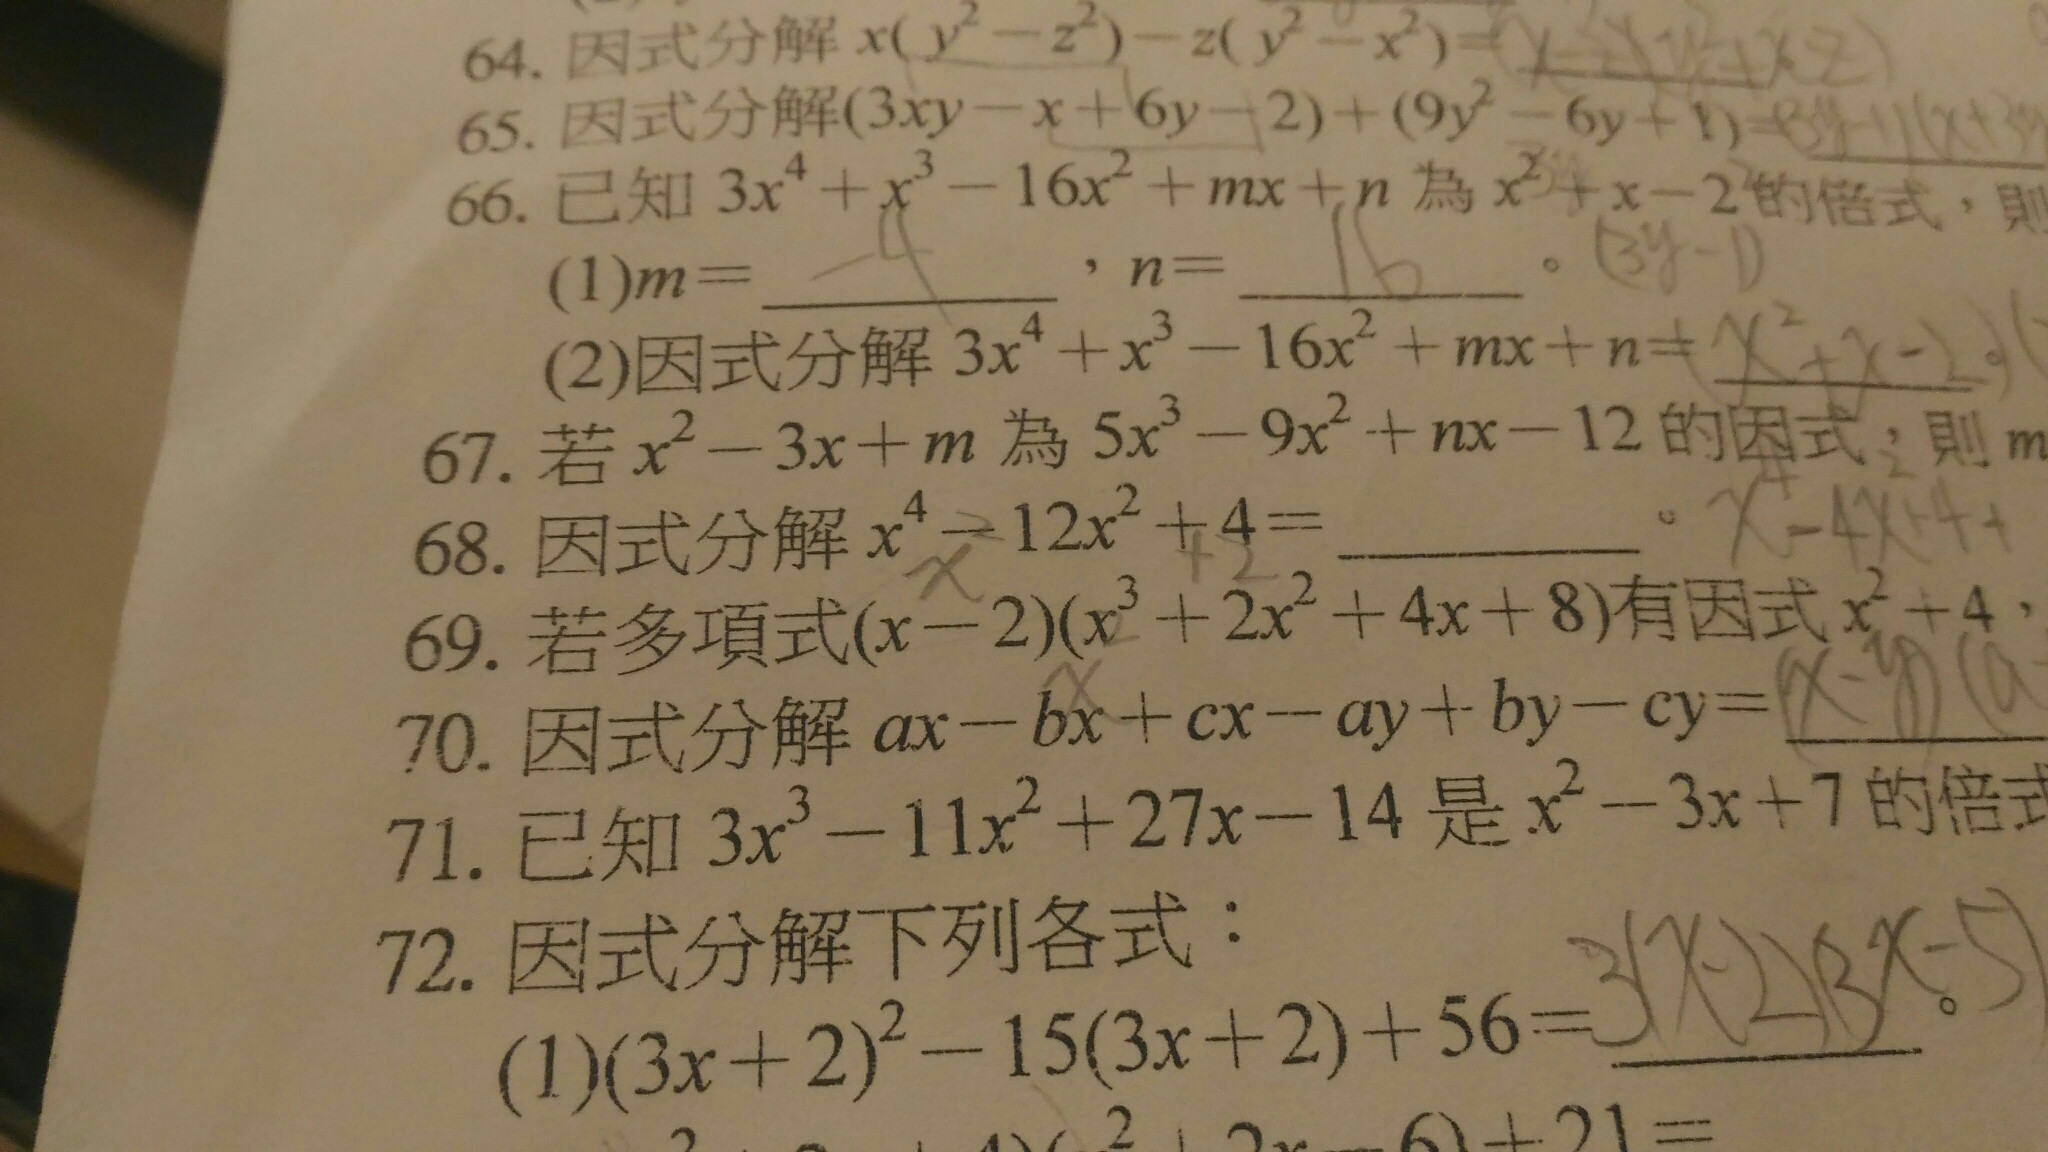 64. 因式分解 x(y²-z²)-z(y²-x²)=
65. 因式分解(3xy-x+6y-2)+(9y²-6y+1)=(3y-1)(x+3y
66. 已知 3x⁴+x³-16x²+mx+n 為 x²+x-2 的倍式，則
(1)m= -4 ，n= 16 。 (3y-1)
(2)因式分解 3x⁴+x³-16x²+mx+n=(x²+x-2)。(
67. 若 x²-3x+m 為 5x³-9x²+nx-12 的因式，則 m
68. 因式分解 x⁴-12x²+4= 。 x⁴-4x²+4+
x² +2
69. 若多項式(x-2)(x³+2x²+4x+8)有因式 x²+4，
x²
70. 因式分解 ax-bx+cx-ay+by-cy=(x-y)(a-
71. 已知 3x³-11x²+27x-14 是 x²-3x+7 的倍式
72. 因式分解下列各式：
(1)(3x+2)²-15(3x+2)+56=3(x-2)(3x-5)。